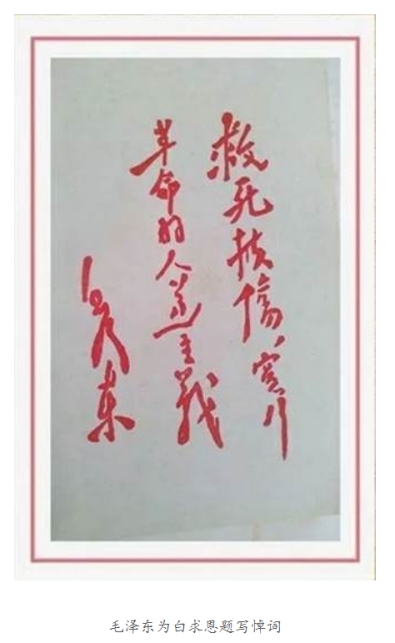 救死扶傷、實行
革命的人道主義
毛澤東
毛泽东为白求恩题写悼词